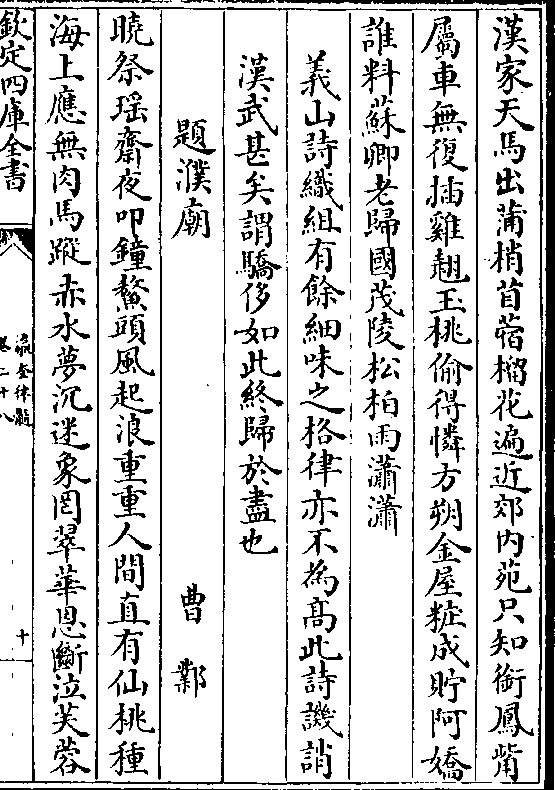 漢家天馬出蒲梢苜蓿榴花遍近郊内苑只知銜鳳觜
屬車無復揷雞翹玉桃偷得憐方朔金屋粧成貯阿嬌
誰料蘇卿老歸國茂陵松柏雨瀟瀟
義山詩織組有餘細味之格律亦不為髙此詩譏誚
漢武甚矣謂驕侈如此終歸於盡也
題濮廟 曹鄴
曉祭瑶齋夜叩鐘鰲頭風起浪重重人間直有仙桃種
海上應無肉馬蹤赤水夢沉迷象罔翠華恩斷泣芙蓉
欽定四庫全書
瀛奎律髓
卷二十八
十